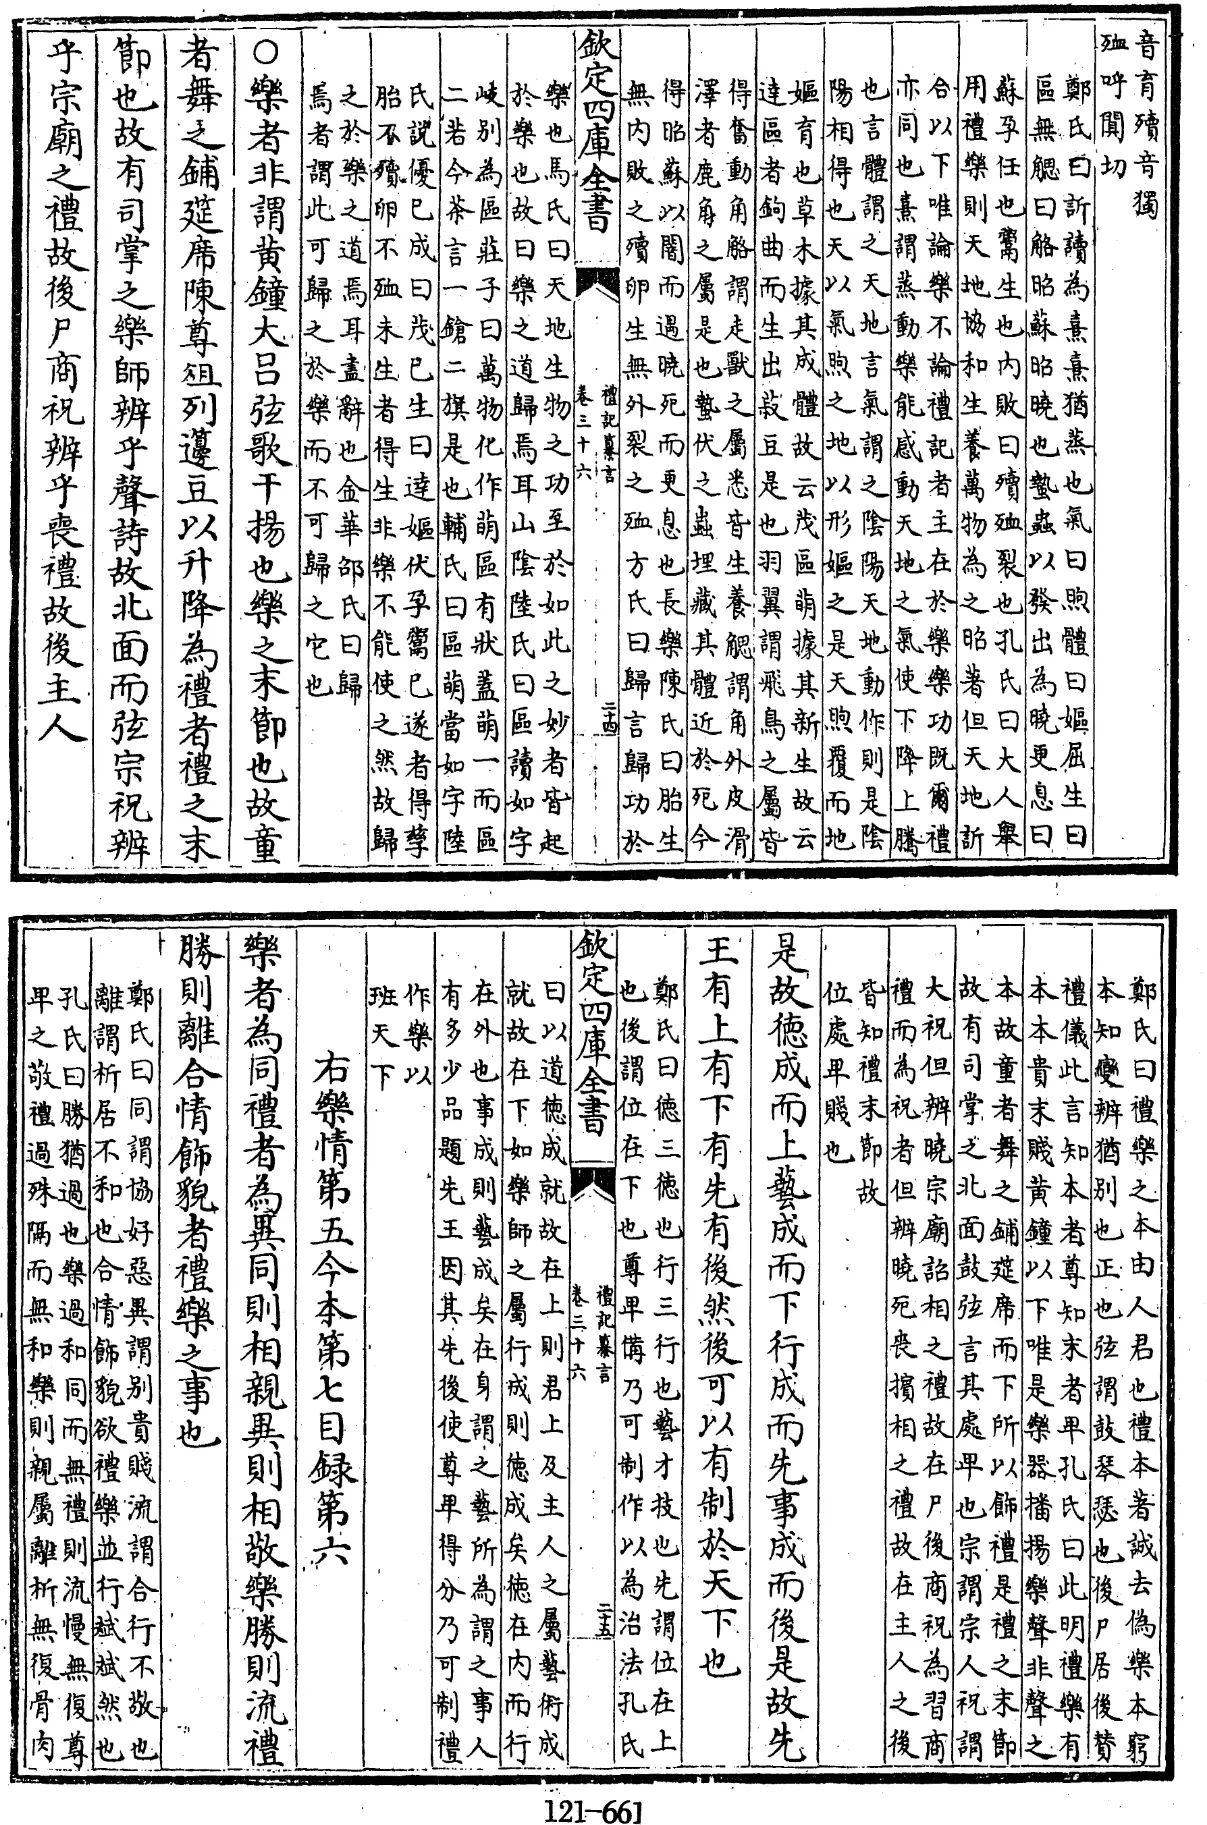 音育殰音獨
殈呼闃切
鄭氏曰訢讀為熹熹猶蒸也氣曰煦體曰嫗屈生曰
區無䚡曰觡昭蘇昭曉也蟄蟲以發出為曉更息曰
蘇孕任也鬻生也内敗曰殰殈裂也孔氏曰大人舉
用禮樂則天地協和生養萬物為之昭著但天地訢
合以下唯論樂不論禮記者主在於樂樂功既爾禮
亦同也熹謂蒸動樂能感動天地之氣使下降上騰
也言體謂之天地言氣謂之陰陽天地動作則是陰
陽相得也天以氣煦之地以形嫗之是天煦覆而地
嫗育也草木據其成體故云茂區萌據其新生故云
達區者鉤曲而生出菽豆是也羽翼謂飛鳥之屬皆
得奮動角觡謂走獸之屬悉皆生養䚡謂角外皮滑
澤者鹿角之屬是也蟄伏之蟲埋藏其體近於死今
得昭蘇以闇而遇曉死而更息也長樂陳氏曰胎生
無内敗之殰卵生無外裂之殈方氏曰歸言歸功於
欽定四庫全書
禮記纂言
卷三十六
二十四
樂也馬氏曰天地生物之功至於如此之妙者皆起
於樂也故曰樂之道歸焉耳山陰陸氏曰區讀如字
岐别為區莊子曰萬物化作萌區有狀蓋萌一而區
二若今茶言一鎗二旗是也輔氏曰區萌當如字陸
氏說優已成曰茂已生曰達嫗伏孕鬻已遂者得孳
胎不殰卵不殈未生者得生非樂不能使之然故歸
之於樂之道焉耳盡辭也金華邵氏曰歸
焉者謂此可歸之於樂而不可歸之它也
○樂者非謂黄鐘大吕弦歌干揚也樂之末節也故童
者舞之鋪筵席陳尊俎列籩豆以升降為禮者禮之末
節也故有司掌之樂師辨乎聲詩故北面而弦宗祝辨
乎宗廟之禮故後尸商祝辨乎喪禮故後主人
鄭氏曰禮樂之本由人君也禮本著誠去偽樂本窮
本知變辨猶别也正也弦謂鼓琴瑟也後尸居後贊
禮儀此言知本者尊知末者卑孔氏曰此明禮樂有
本本貴末賤黄鐘以下唯是樂器播揚樂聲非聲之
本故童者舞之鋪筵席而下所以飾禮是禮之末節
故有司掌之北面鼓弦言其處卑也宗謂宗人祝謂
大祝但辨曉宗廟詔相之禮故在尸後商祝為習商
禮而為祝者但辨曉死喪擯相之禮故在主人之後
皆知禮末節故
位處卑賤也
是故徳成而上藝成而下行成而先事成而後是故先
王有上有下有先有後然後可以有制於天下也
鄭氏曰徳三徳也行三行也藝才技也先謂位在上
也後謂位在下也尊卑備乃可制作以為治法孔氏
欽定四庫全書
禮記纂言
卷三十六
二十五
曰以道徳成就故在上則君上及主人之屬藝術成
就故在下如樂師之屬行成則徳成矣徳在内而行
在外也事成則藝成矣在身謂之藝所為謂之事人
有多少品題先王因其先後使尊卑得分乃可制禮
作樂以
班天下
右樂情第五今本第七目録第六
樂者為同禮者為異同則相親異則相敬樂勝則流禮
勝則離合情飾貌者禮樂之事也
鄭氏曰同謂協好惡異謂别貴賤流謂合行不敬也
離謂析居不和也合情飾貌欲禮樂並行斌斌然也
孔氏曰勝猶過也樂過和同而無禮則流慢無復尊
卑之敬禮過殊隔而無和樂則親屬離析無復骨肉
121-661